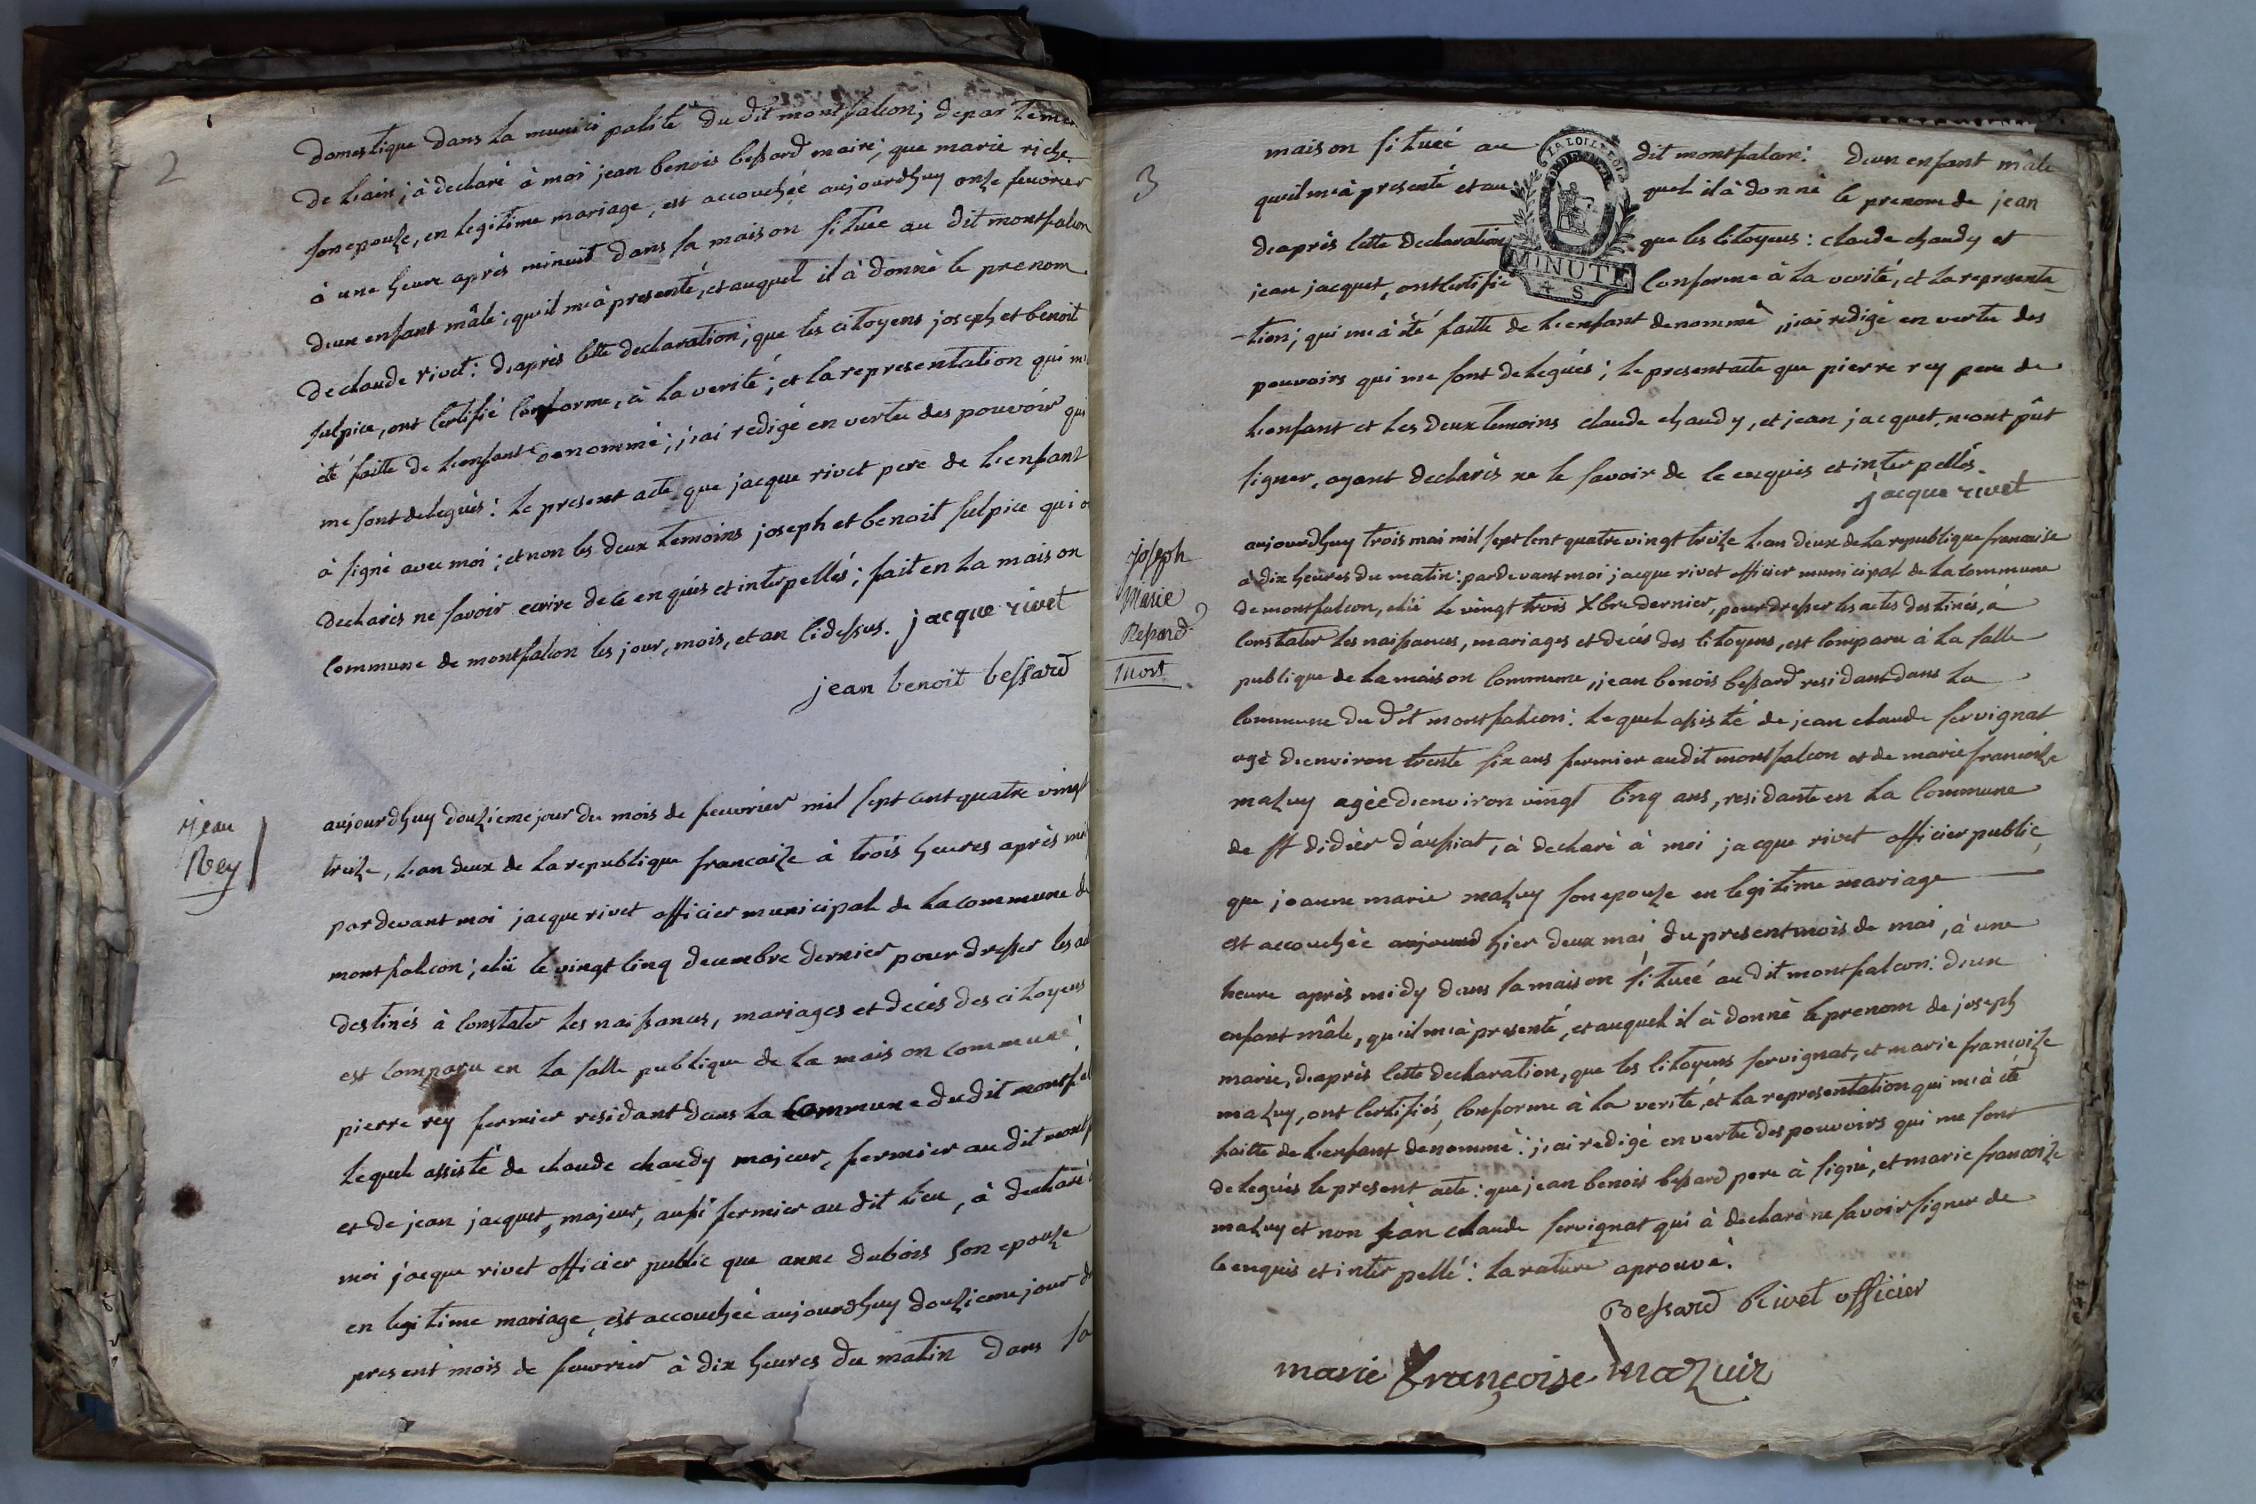 2
domestique dans la munici palité du dit montfalcon, departeme
de l'ain; à declaré à moi jean benois bessard maire; que marie riche
son epouse, en legitime mariage, est accouchéé aujourdhuy onze feuvrier
à une heure après minuit dans sa maison situéé au dit montfalcon
d'un enfant mâle; qu'il m'à presenté, et auquel il à donné le prenom
de claude rivet: d'après cette declaration; que les citoyens joseph et benoit
sulpice, ont certifié conforme, à la verité; et la representation qui m'
été faitte de l'enfant denommé; j'ai redigé en vertu des pouvoir qui
me sont delegués: le present acte que jacque rivet pere de l'enfant
à signé avec moi; et non les deux temoins joseph et benoit sulpice qui o
declarés ne savoir ecrire de ce enquis et interpellés; fait en la maison
commune de montfalcon les jour, mois, et an cidessus. jacque rivet
jean benoit bessard
jean
Rey
aujourdhuy douzieme jour du mois de feuvrier mil sept cent quatre vingt
treize, l'an deux de la republique francaize à trois heures après mi
pardevant moi jacque rivet officier municipal de la commune de
montfalcon; elü le vingt cinq decembre dernier pour dresser les ac
destinés à constater les naissances, mariages et décés des citoyens
est comparu en la salle publique de la maison commune
pierre rey fermier residant dans la commune du dit montfal
lequel assisté de claude chaudy majeur, fermier au dit montf
et de jean jacquet, majeur, aussi fermier au dit lieu, à declaré à
moi jacque rivet officier public que anne dubois son epouze
en legitime mariage, est accouchéé aujourdhuy douzieme jour du
present mois de feuvrier à dix heures du matin dans sa
3
maison situéé au dit montfalcon: d'un enfant mâle
qu'il m'à presenté et au quel il à donné le prenom de jean
d'après cette declaration que les citoyens: claude chaudy et
jean jacquet, ont certifié conforme à la verité, et la representa-
-tion; qui m'à été faitte de l'enfant denommé j'ai redigé en vertu des
pouvoirs qui me sont delegués; le present acte que pierre rey pere de
l'enfant et les deux temoins claude chaudy, et jean jacquet, n'ont pût
signer, ayant declarés ne le savoir de ce enquis et interpellés.
jacque rivet
LA LOI LE ROI
MINUTE
S
joseph
Marie
Bessard
mort
aujourdhuy trois mai mil sept cent quatre vingt treize l'an deux de la republique francaise
à dix heures du matin: pardevant moi jacque rivet officier municipal de la commune
de montfalcon, elü le vingt trois Xbre dernier, pour dresser les actes destinés, à
constater les naissances, mariages et decés des citoyens, est comparu à la salle
publique de la maison commune, jean benois bessard residant dans la
commune du dit montfalcon: lequel assisté de jean claude servignat
agé d'environ trente six ans fermier audit montfalcon et de marie francoise
mazuy agéé d'environ vingt cinq ans, residante en la commune
de st didier d'aussiat, à declaré à moi jacque rivet officier public,
que jeanne marie mazuy son epouse en legitime mariage
est accouchéé aujourd hier deux mai du present mois de mai, à une
heure après midy dans sa maison situéé au dit montfalcon: d'un
enfant mâle, qu'il m'à presenté, et auquel il à donné le prenom de joseph
marie, d'après cette declaration, que les citoyens servignat, et marie francoize
mazuy, ont certifiés, conforme à la verité, et la representation qui m'à été
faitte de l'enfant denommé: j'ai redigé en vertu des pouvoirs qui me sont
delegués le present acte: que jean benois bessard pere à signé, et marie francoize
mazuy et non jean claude servignat qui à declaré ne savoir signer de
ce enquis et interpellé: la rature aprouvé.
Bessard Rivet officier
marie françoise mazuir